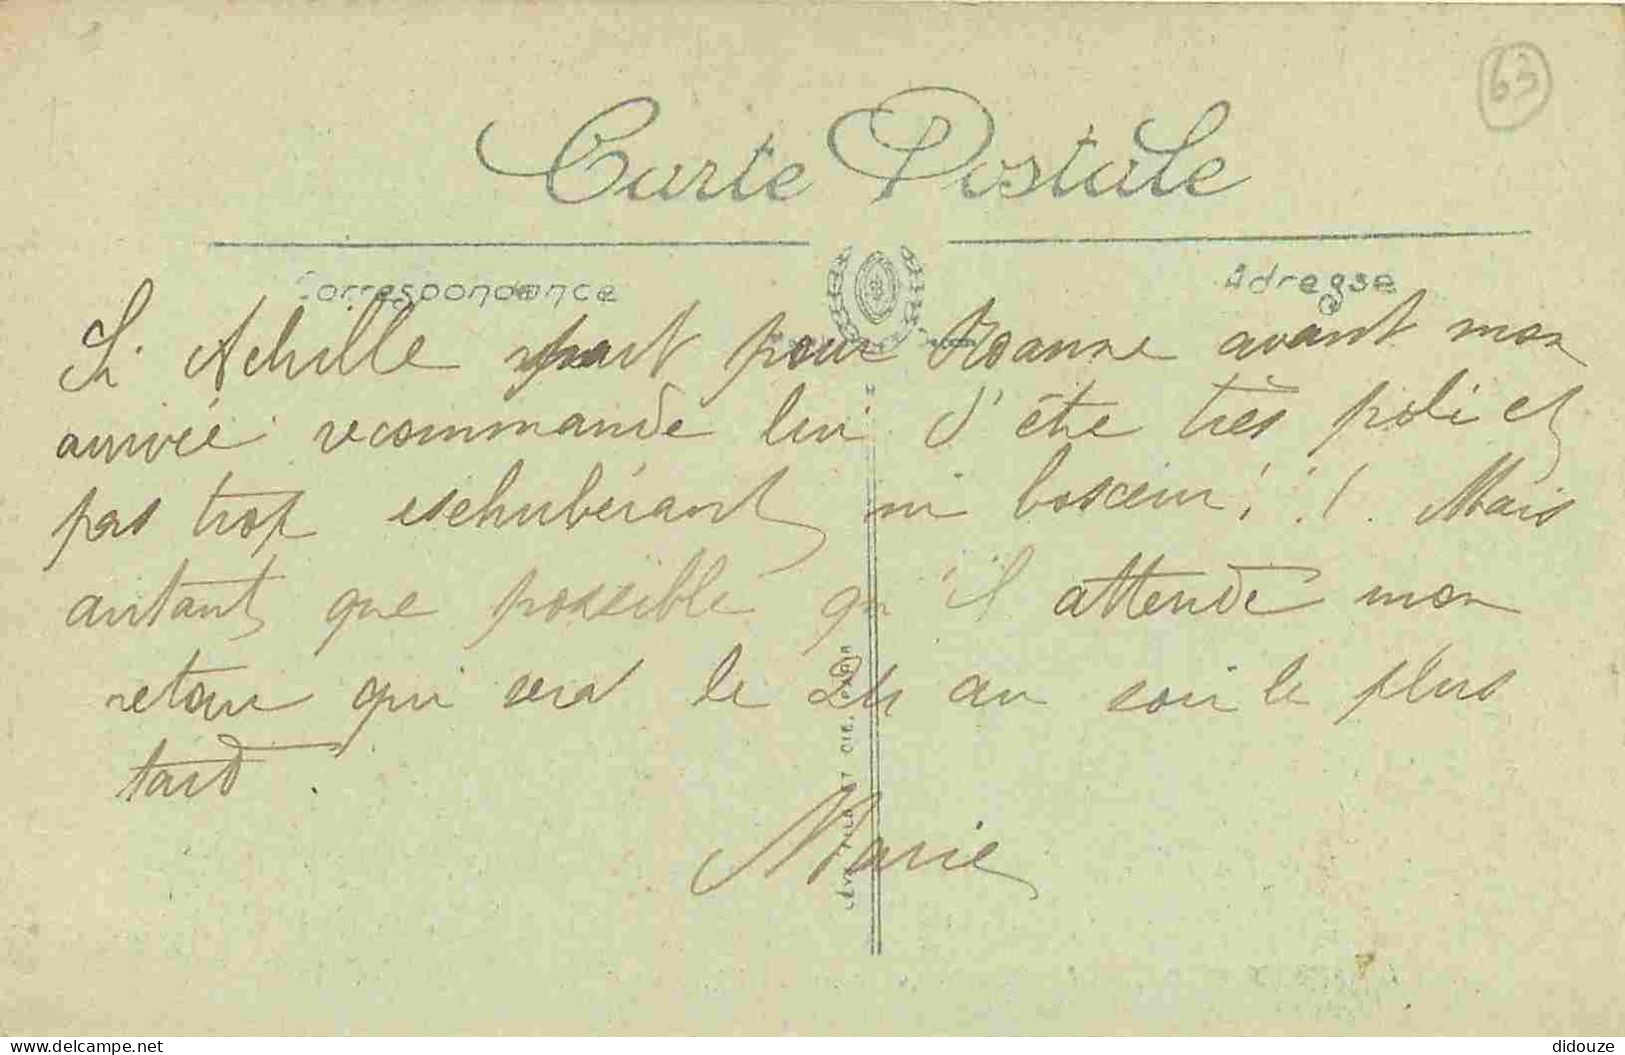 63
Carte Postale
Correspondance
Adresse
Si Achille part pour Roanne avant mon
arrivée recommande lui d'être très poli et
pas trop eschubérant ni bosceur ! ! ! Mais
autant que possible qu'il attende mon
retour qui sera le 24 au soir le plus
tard.
Marie
LEVY FILS ET CIE, PARIS
delcampe.net
didouze